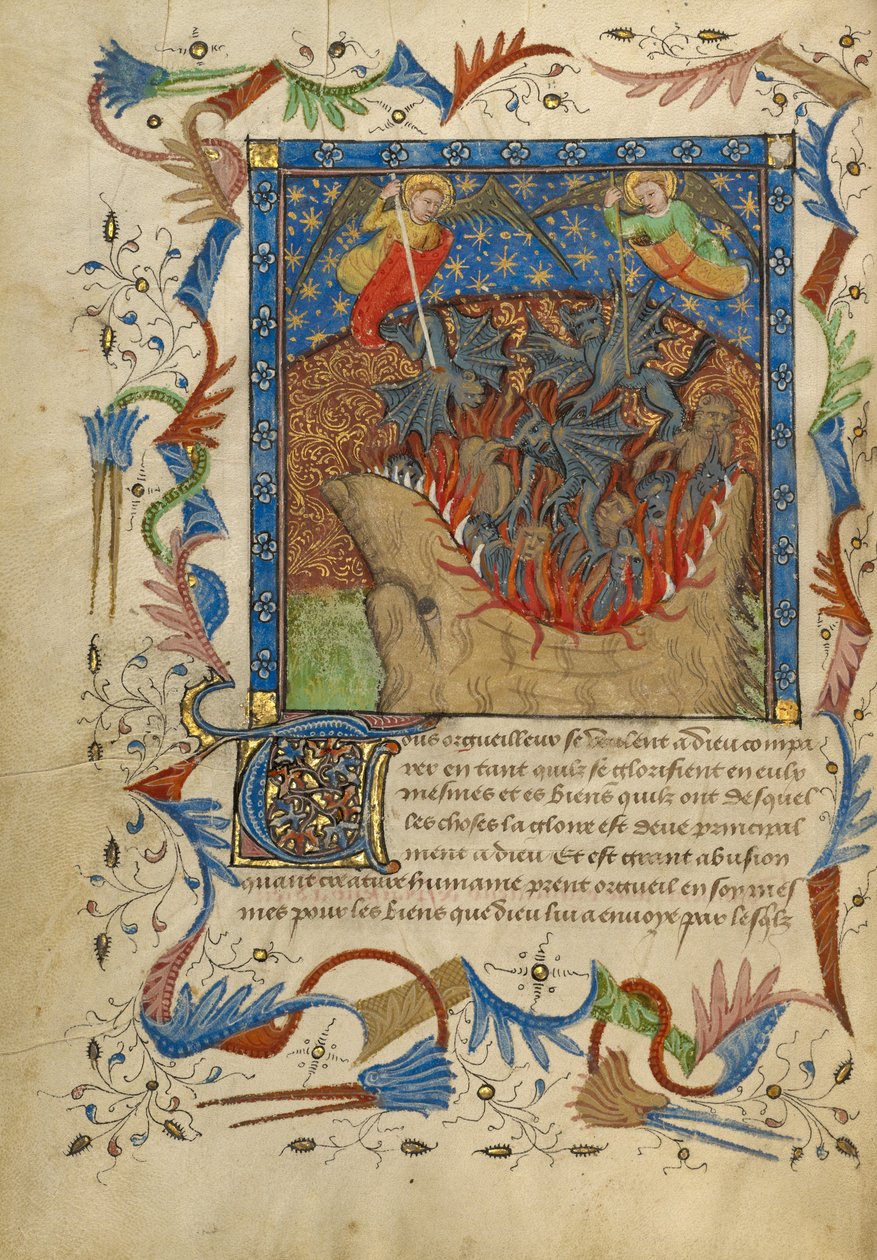 Tous orgueilleux se veulent a dieu compa
rer en tant quilz se glorifient en eulx
mesmes et es biens quilz ont desquel
les choses la gloire est deue principal
ment a dieu Et est grant abusion
quant creature humaine prent orgueil en soy mes
mes pour les biens que dieu lui a envoye par lesqlz